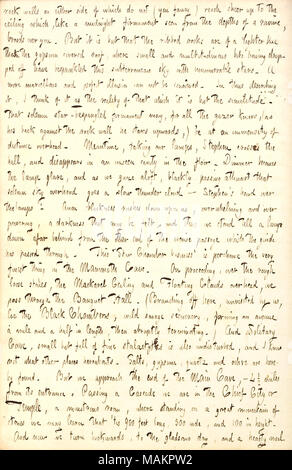 rock walls on either side of which do not, you fancy, reach sheer up to the
ceiling which like a midnight firmament seen from the depths of a ravine
bounds your eye. But it is not that the ribbed rocks are of a lighter hue
that the gypsum covered roof where small and multitudinous bits having
of have respangled this subterranean sky with innumerable stars. A
more marvellous and perfect illusion can not be conceived. In thus describing
it, I think of it as the reality of that which it is but the similitude.
That solemn star-respangled firmament may, for all the gazer knows, (as
his back against the rock wall he stares upwards,) be at an immensity of
distance overhead. Meantime, taking our lamps, Stephen crosses the
hall, and disappears in an unseen cavity in the floor. Dimmer becomes
the lamps glare, and as we gaze aloft, blackly passing athwart that
solemn sky overhead goes a slow thunder cloud — Stephen's hand over
the lamps! Anon blackness rushes down upon us, overwhelming and over
powering, a darkness that may be felt, and thus we stand till a lamp
dawns afar behind from the far end of the narrow passage which the guide
has passed through. This Star Chamber business is perchance the very
finest thing in the Mammoth Cave. On proceeding, over the rough
loose rocks, the Mackerel Ceiling and Floating Clouds overhead, we
pass through the Banquet Hall. (Branching off here, unvisited by us,
lie the Black Chambers, wild savage scenery, forming an avenue
a mile and a half in length then abruptly terminating.) And Solitary
Cave, small but full of fine stalactites is also undisturbed, and I have
no doubt that other places hereabouts. Salts, gypsum, quartz and other are here
found. But we approach the end of the Main Cave, — 4½ miles
from its entrance. Passing a Cascade we are in the Chief City or
Temple, a monstrous room, where standing on a great mountain of
stones we may learn that tis 920 feet long, 300 wide, and 100 in height.
And now we turn backwards, to the gladsome day, and a hearty meal
alamy
Image ID: MAKPW2
www.alamy.com